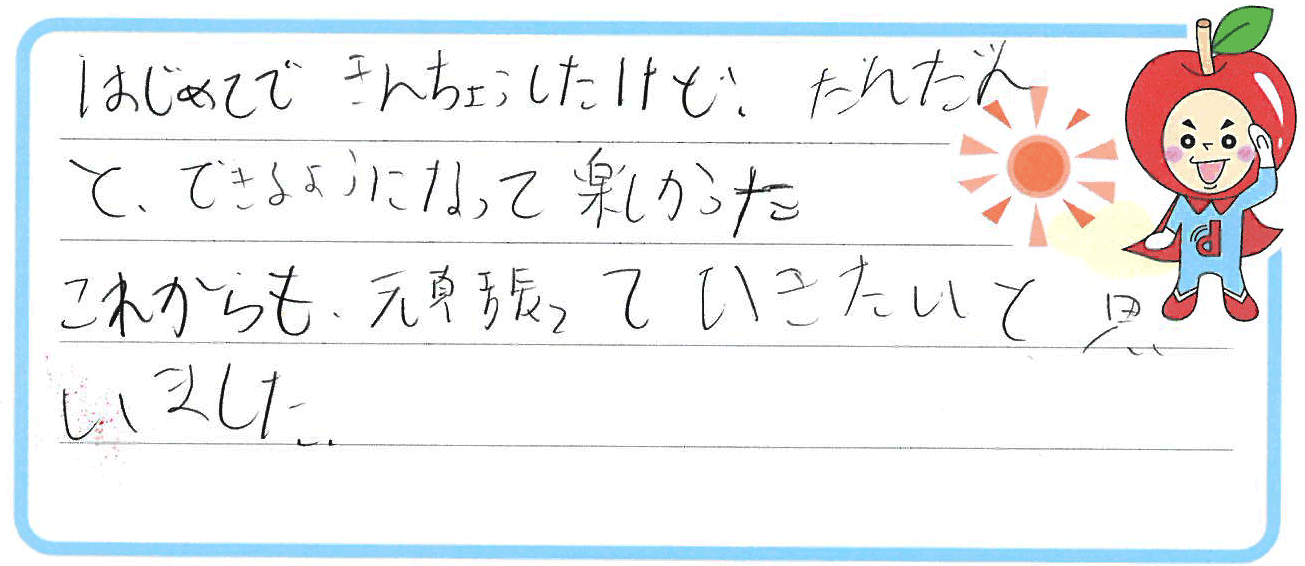 はじめてで きんちょうしたけど、だんだん
と、できるようになって楽しかった
これからも、頑張っていきたいと思
いました。